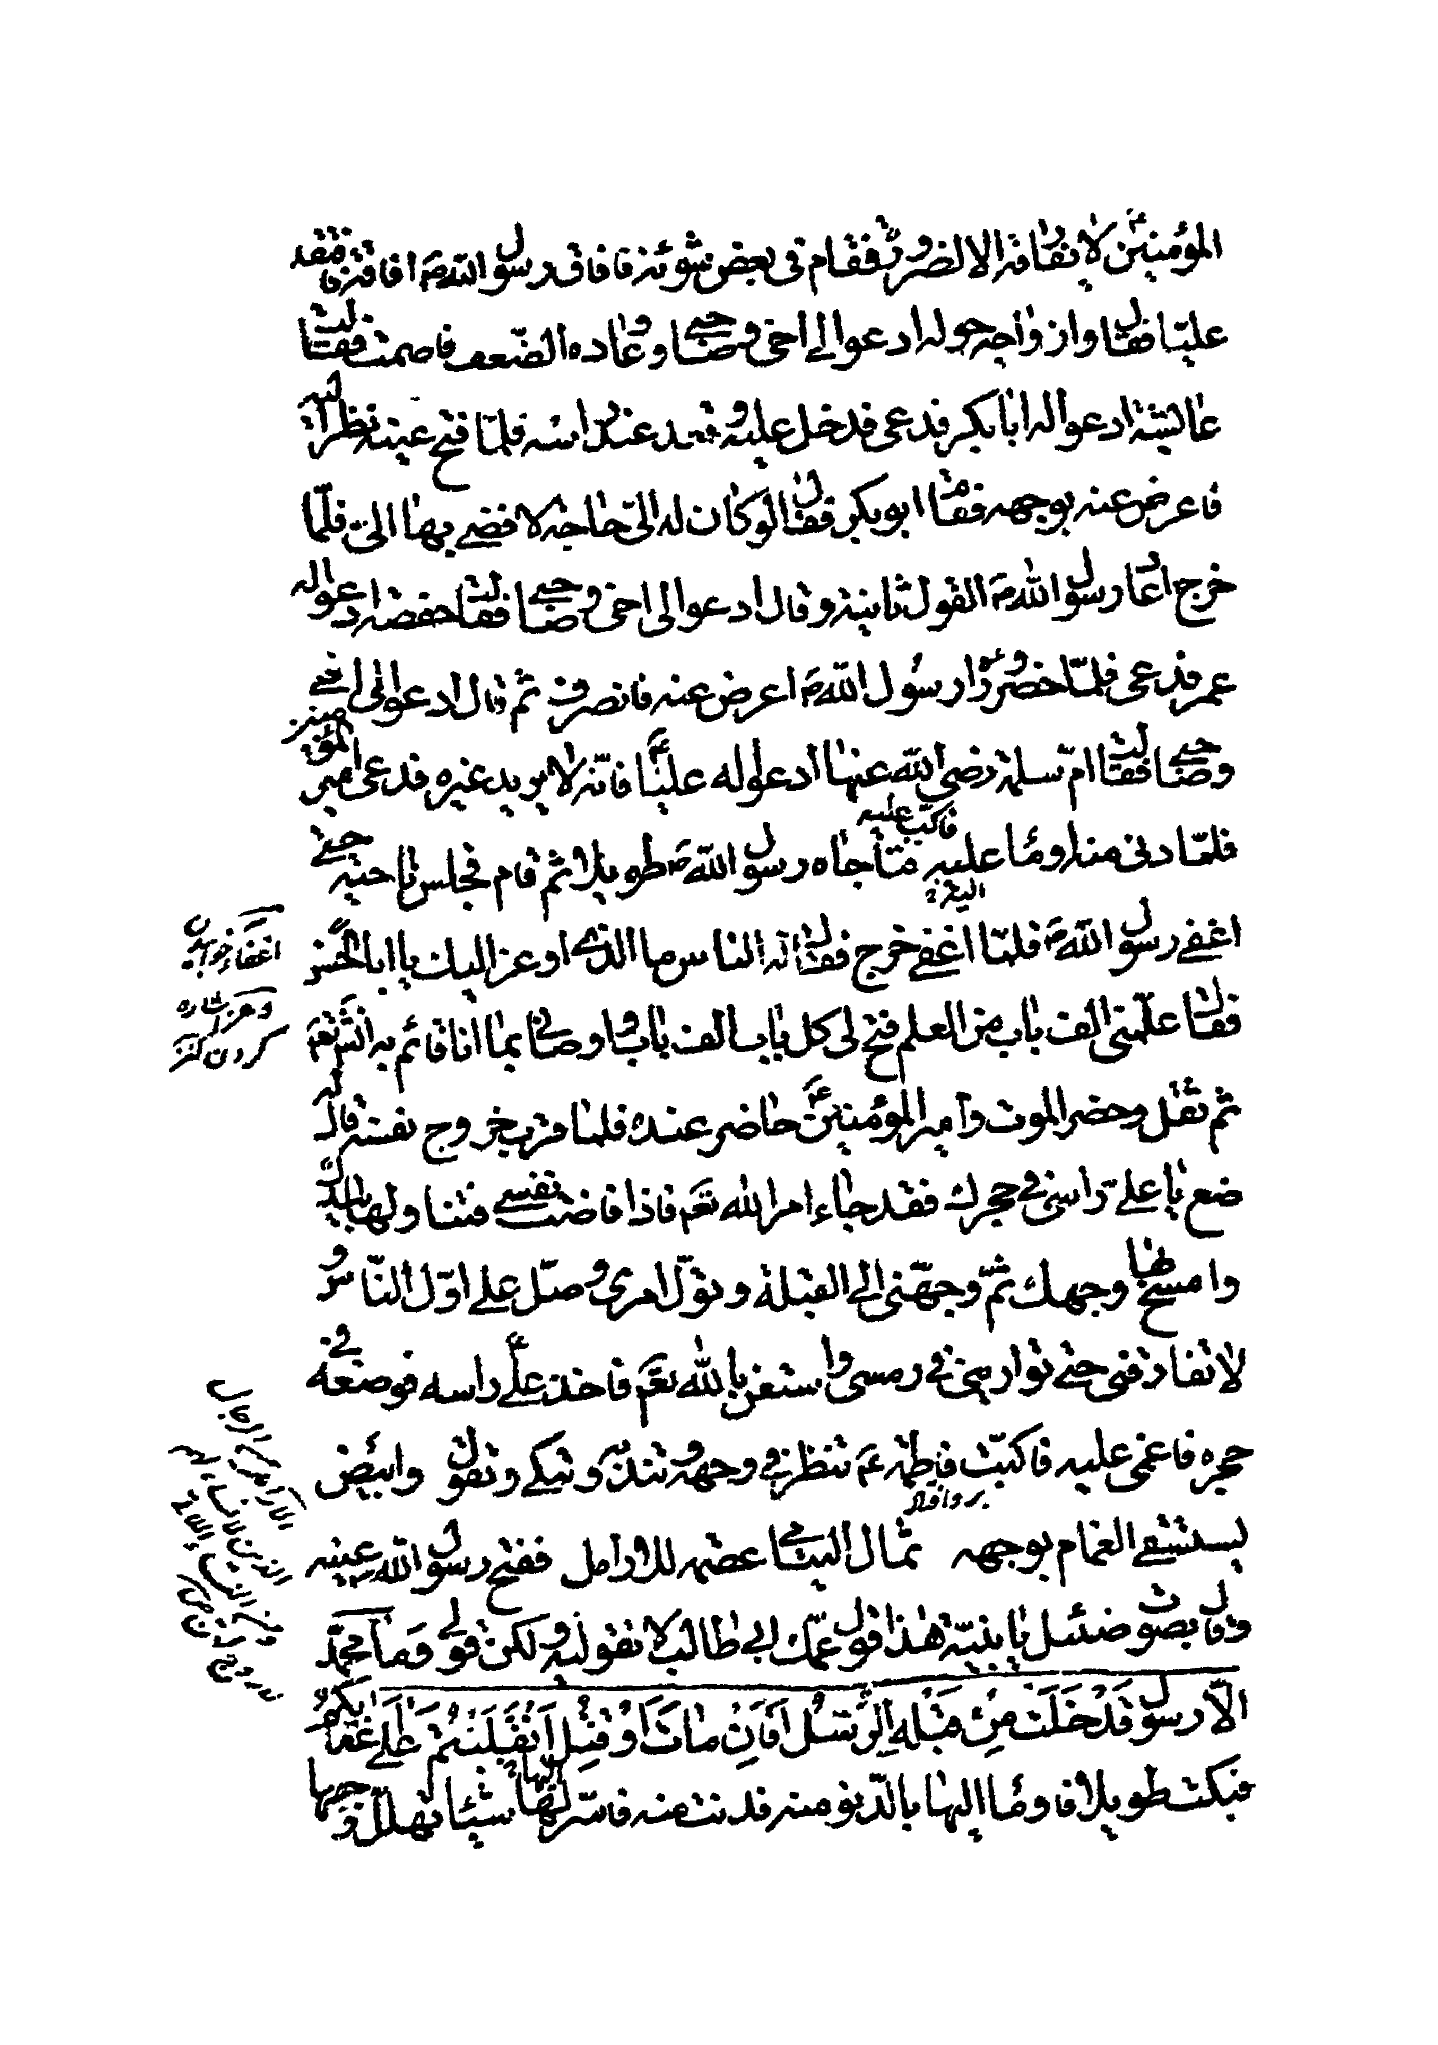 المؤمنين ع لا يفارقه الا لضرورة فقام فى بعض شؤنه فافاق رسول الله ص افاقة فافتقد
عليّا فقال وازواجه حوله ادعوا لى اخى وصاحبى وعاوده الضّعف فاصمت فقالت
عايشة ادعوا له ابا بكر فدعى فدخل عليه وقعد عند راسه فلمّا فتح عينه نظر اليه
فاعرض عنه بوجهه فقام ابو بكر فقال لو كان له الىّ حاجة لافضى بها الىّ فلمّا
خرج اعاد رسول الله ص القول ثانية وقال ادعوا لى اخى وصاحبى فقالت حفصة ادعوا له
عمر فدعى فلمّا حضر وراه رسول الله ص اعرض عنه فانصرف ثم قال ادعوا لى اخى
وصاحبى فقالت امّ سلمة رضى الله عنها ادعوا له عليّا ع فانّه لا يريد غيره فدعى امير المؤمنين
فلمّا دنى منه اومأ عليه فاكبّ عليه فناجاه رسول الله ص طويلا ثم قام فجلس ناحية حتى
اغفى رسول الله ص فلمّا اغفى خرج فقال له الناس ما الذى اوعز اليك يا ابا الحسن
فقال علّمنى الف باب من العلم فتح لى كل باب الف باب واوصانى بما انا قائم به انش تع
ثم ثقل وحضر الموت وامير المؤمنين ع حاضر عنده فلما قرب خروج نفسه قال له
ضع يا على راسى فى حجرك فقد جاء امر الله تع فاذا فاضت نفسى فتناولها بيدك
وامسح بها وجهك ثمّ وجّهنى الى القبلة وتولّ امرى وصلّ على اوّل النّاس و
لا تفارقنى حتى توارينى فى رمسى واستعن بالله تع فاخذ علىّ ع راسه فوضعه فى
حجره فاغمى عليه فاكبّت فاطمة ع تنظر فى وجهه وتندبه وتبكى وتقول وابيض
يستسقى الغمام بوجهه ثمال اليتامى عصمة للارامل ففتح رسول الله ص عينيه
وقال بصوت ضئيل يا بنيّة هذا قول عمّك ابى طالب لا تقوليه ولكن قولى وَمَا مُحَمَّدٌ
اِلَّا رسول قَدْ خَلَتْ مِنْ قَبْلِهِ الرُّسُلُ اَفَاِنْ مَاتَ اَوْ قُتِلَ انْقَلَبْتُمْ عَلَى اَعْقَابِكُمْ
فبكت طويلا فاومأ اليها بالدّنو منه فدنت منه فاسرّ اليها شيئا تهلّل وجهها